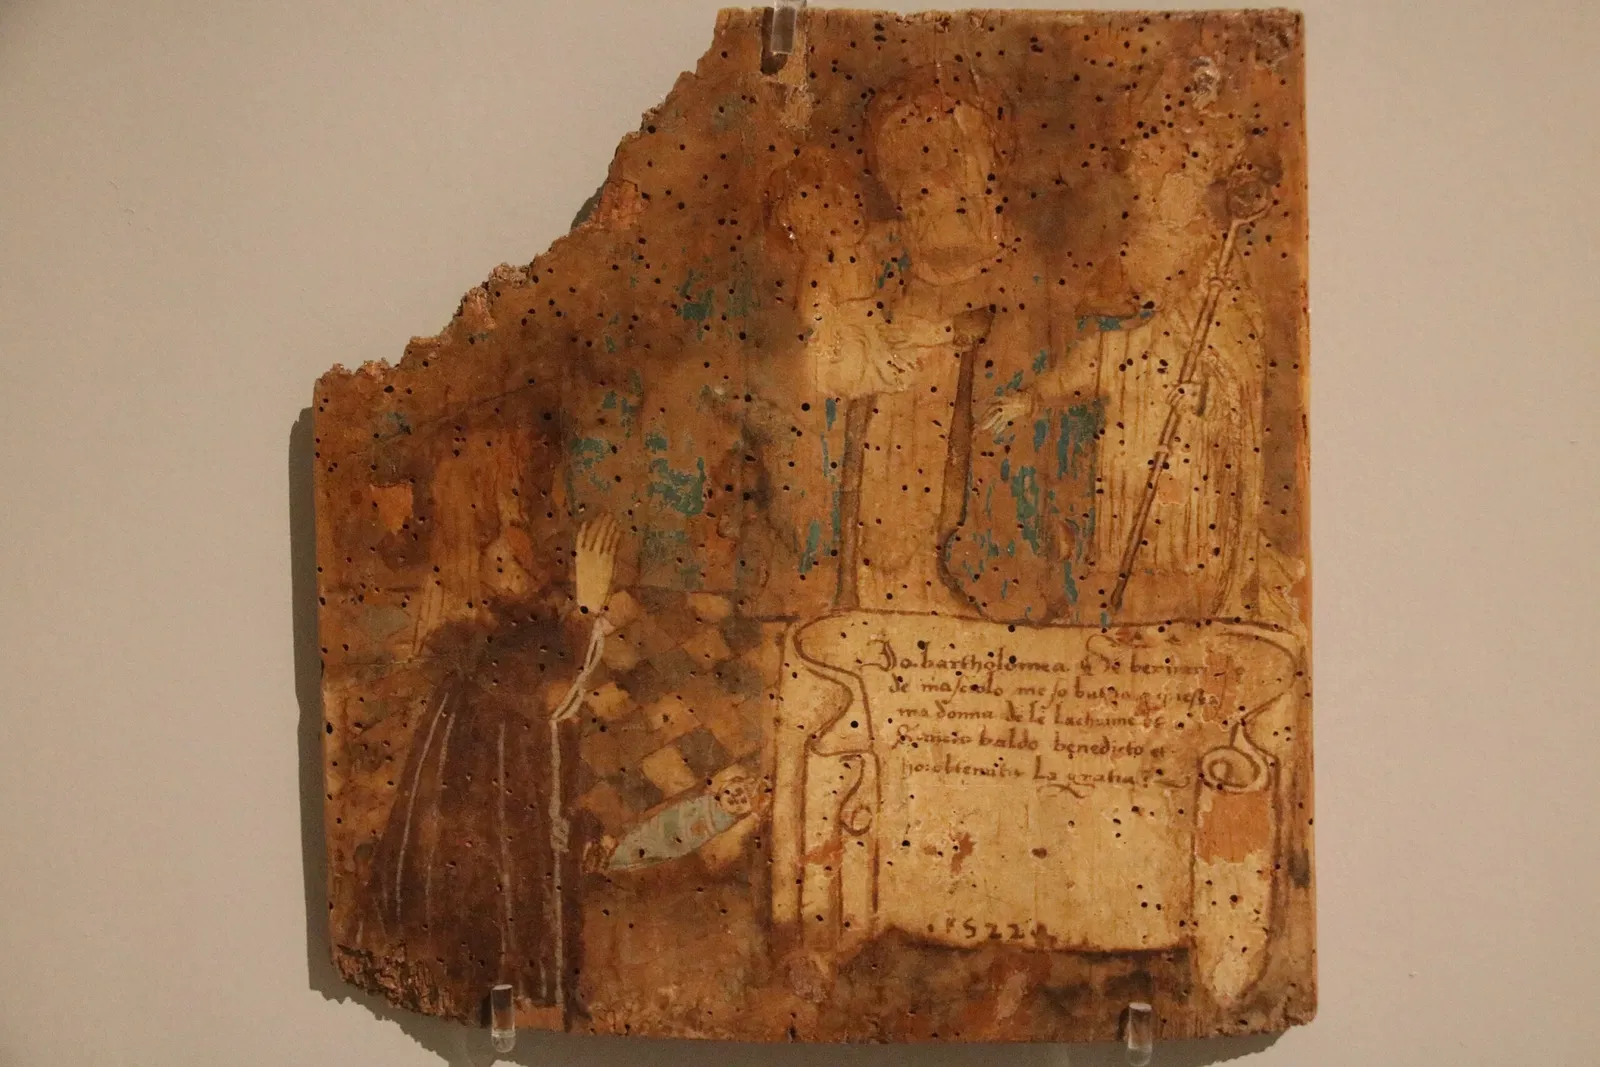 Io bartholomea de
de masciolo me so buttata questa
madonna de le lachrime et
Sancto baldo benedicto et
ho obtenuta La gratia
1522